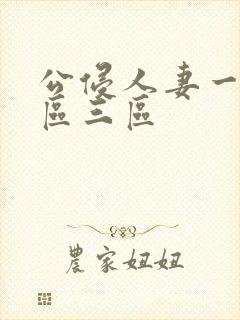 公侵人妻一
區三區
農家妞妞